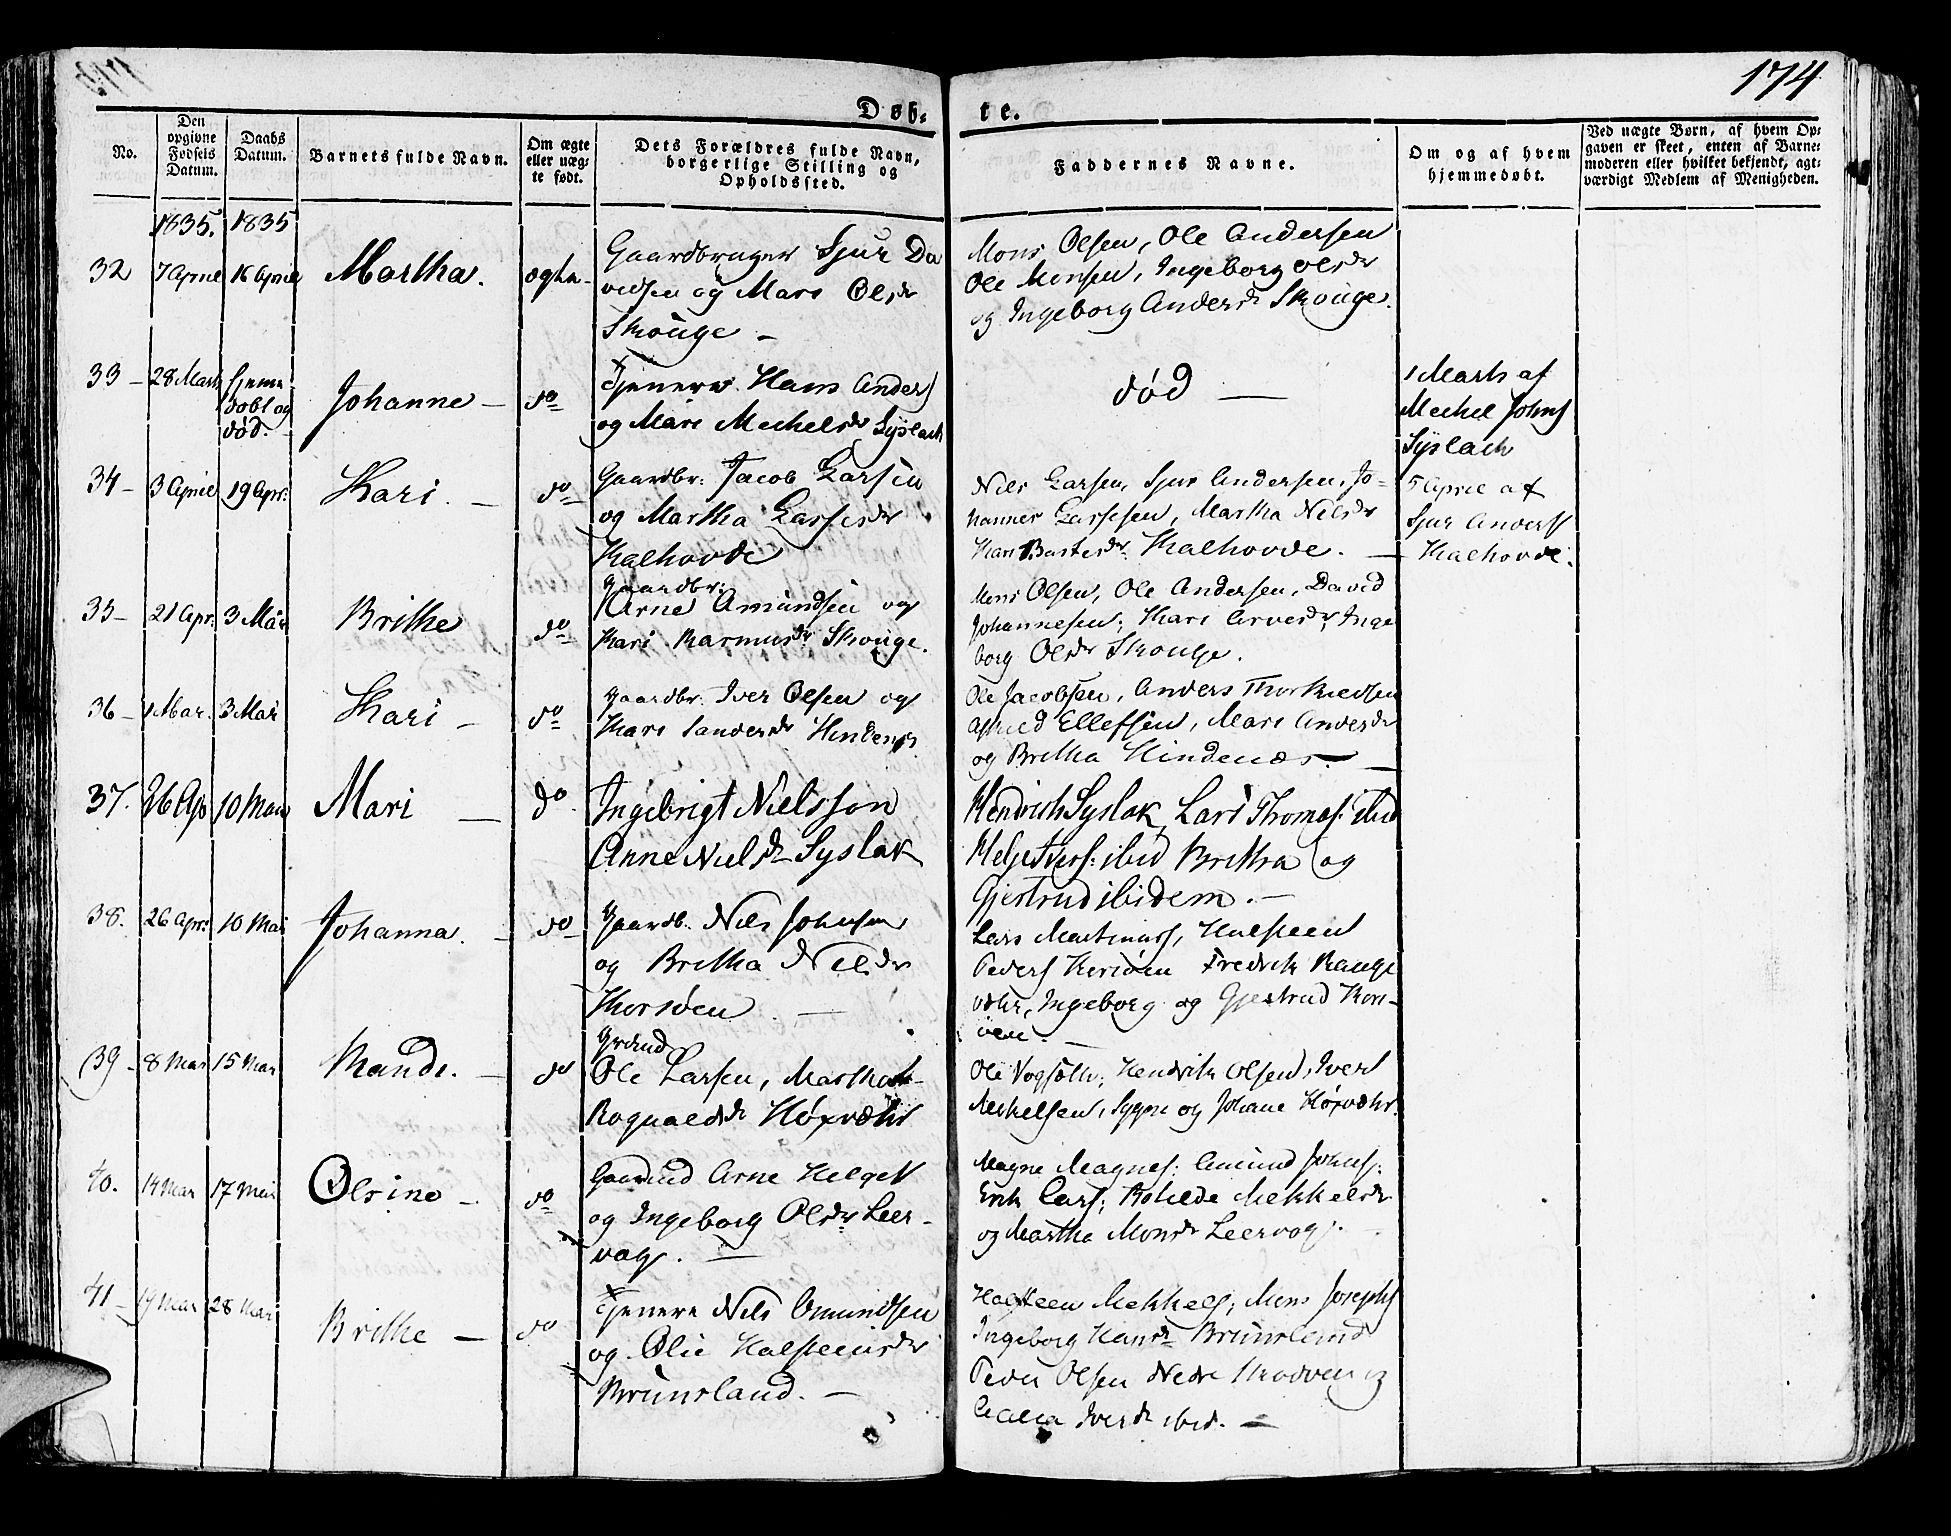 174
Døb-
te.
No.
Den opgivne Fødsels Datum.
Daabs Datum.
Barnets fulde Navn.
Om ægte eller uæg-te født.
Dets Forældres fulde Navn, borgerlige Stilling og Opholdssted.
Faddernes Navne.
Om og af hvem hjemmedøbt.
Ved uægte Børn, af hvem Op-gaven er skeet, enten af Barne-moderen eller hvilket bekjendt, agt-værdigt Medlem af Menigheden.
1835. 1835
32 7 April 16 April Martha. ægte
Gaardbruger Sjur Da
vidsen og Mari Olsdr
Skouge
Mons Olsen, Ole Andersen
Ole Monsen, Ingeborg Olsdr
og Ingeborg Andersdr Skouge.
33 28 Marts hjemme
døbt og
død.
Johanne do
Tjenere Hans Anders
og Mari Mechelsdr Syslach
død
1 Marts af
Mechel Johns
Syslach
34 3 April 19 Apr: Kari. do
Gaardbr: Jacob Larsen
og Martha Larsesdr
Kalhovde
Nils Larsen, Sjur Andersen, Jo-
hannes Larsesen, Martha Nilsdr
Kari Kalhovde.
5 April af
Sjur Anders
Kalhovde.
35 21 Apr: 3 Mai Brithe do
Gaardbr:
Arne Amundsen og
Kari Rasmusdr Skouge.
Mons Olsen, Ole Andersen, David
Johannesen, Kari Arnesdr, Inge
borg Olsdr Skouge.
36 1 Mai. 3 Mai Kari do
Gaardbr: Iver Olsen og
Kari Sandersdr Hindenes
Ole Jacobsen, Anders
Astrid Ellefsen, Mari Andersdr
og Britha Hindenæs
37. 26 Ap 10 Mai Mari do
Ingebrigt Nielsson
Anne Nielsdr Syslak
Hendrich Syslak, Lars Thomas: ibid
ibid Britha og
Gjertrud ibidem.
38. 26 Apr: 10 Mai Johanna. do
Gaardb. Nils Johnsen
og Britha Nilsdr
Thorsøen
Lars Martinus, Halsteen
Peders Fredrik
Ingeborg og Gjertrud Kors-
øen.
39 8 Mai 15 Mai Mande. do
Grdmd
Ole Larsen, Martha
Rognaldsdr
Ole Hendrik Olsen, Iver
Mekelsen, Sygne og Johane
40. 14 Mai 17 Mai Olsine do
Gaardmd Arne Helges
og Ingeborg Olsdr Leer-
vag.
Magne Magnes: Amund Johns:
Erik Lars: Bolilde Mekkelsdr
og Martha Monsdr Leervag.
41 19 Mai 28 Mai Brithe do
Tjenere Nils Omundsen
og Olie Halsteensdr
Brunsland.
Halsteen Mekkels, Mons Josephs
Ingeborg Hansdr Brunsland
Peder Olsen Nedre Skodven og
Cicilia Iversdr ibid.